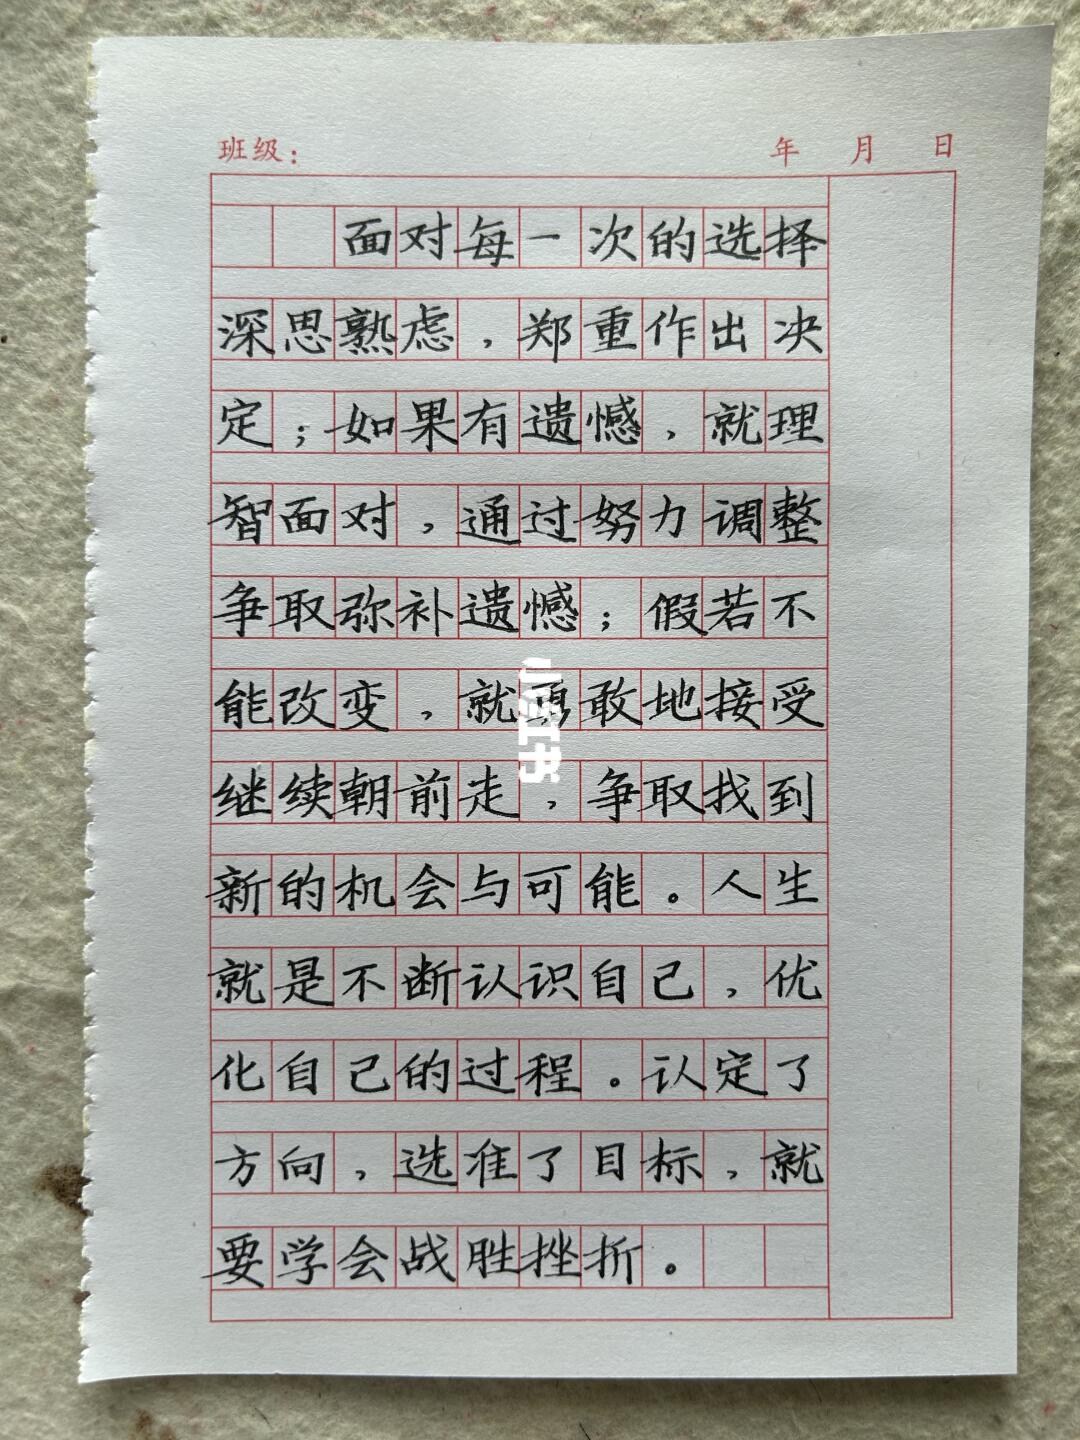 班级： 年 月 日
面对每一次的选择
深思熟虑，郑重作出决
定；如果有遗憾，就理
智面对，通过努力调整
争取弥补遗憾；假若不
能改变，就勇敢地接受
继续朝前走，争取找到
新的机会与可能。人生
就是不断认识自己，优
化自己的过程。认定了
方向，选准了目标，就
要学会战胜挫折。
小红书